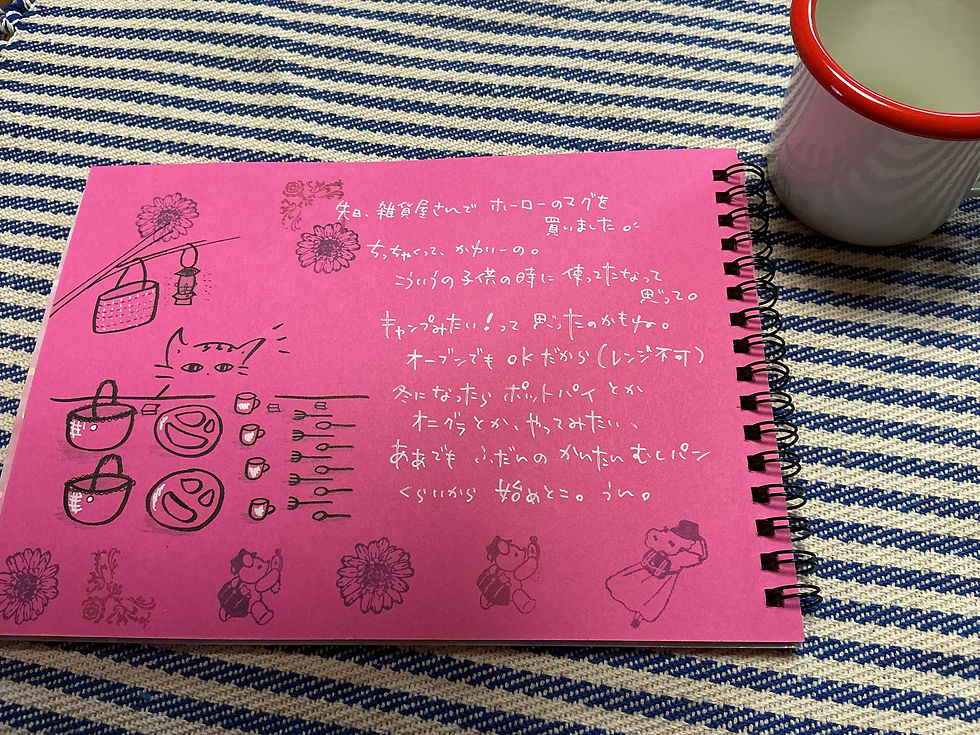 先日、雑貨屋さんで ホーローのマグを
買いました。
ちっちゃくって、かわいーの。
こういうの子供の時に使ってたなって
思って。
キャンプみたい！って 思ったのかもね。
オーブンでも OKだから（レンジ不可）
冬になったら ポットパイ とか
オニグラとか、やってみたい、
ああでも ふだんの かんたん むしパン
くらいから 始めとこ。うん。